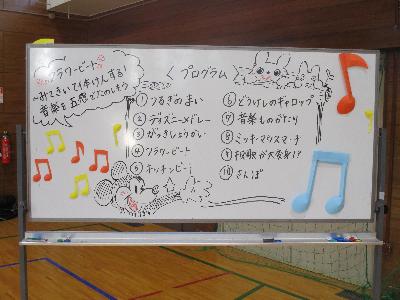 フラワービート
～みて きいて 体けんする！
音楽を五感でたのしもう
〈プログラム〉
① つるぎのまい
② ディズニーメドレー
③ がっきしょうかい
④ フラワービート
⑤ キッチンビート
⑥ どうけしのギャロップ
⑦ 音楽ものがたり
⑧ ミッキーマウスマーチ
⑨ 校歌が大変身!?
⑩ さんぽ